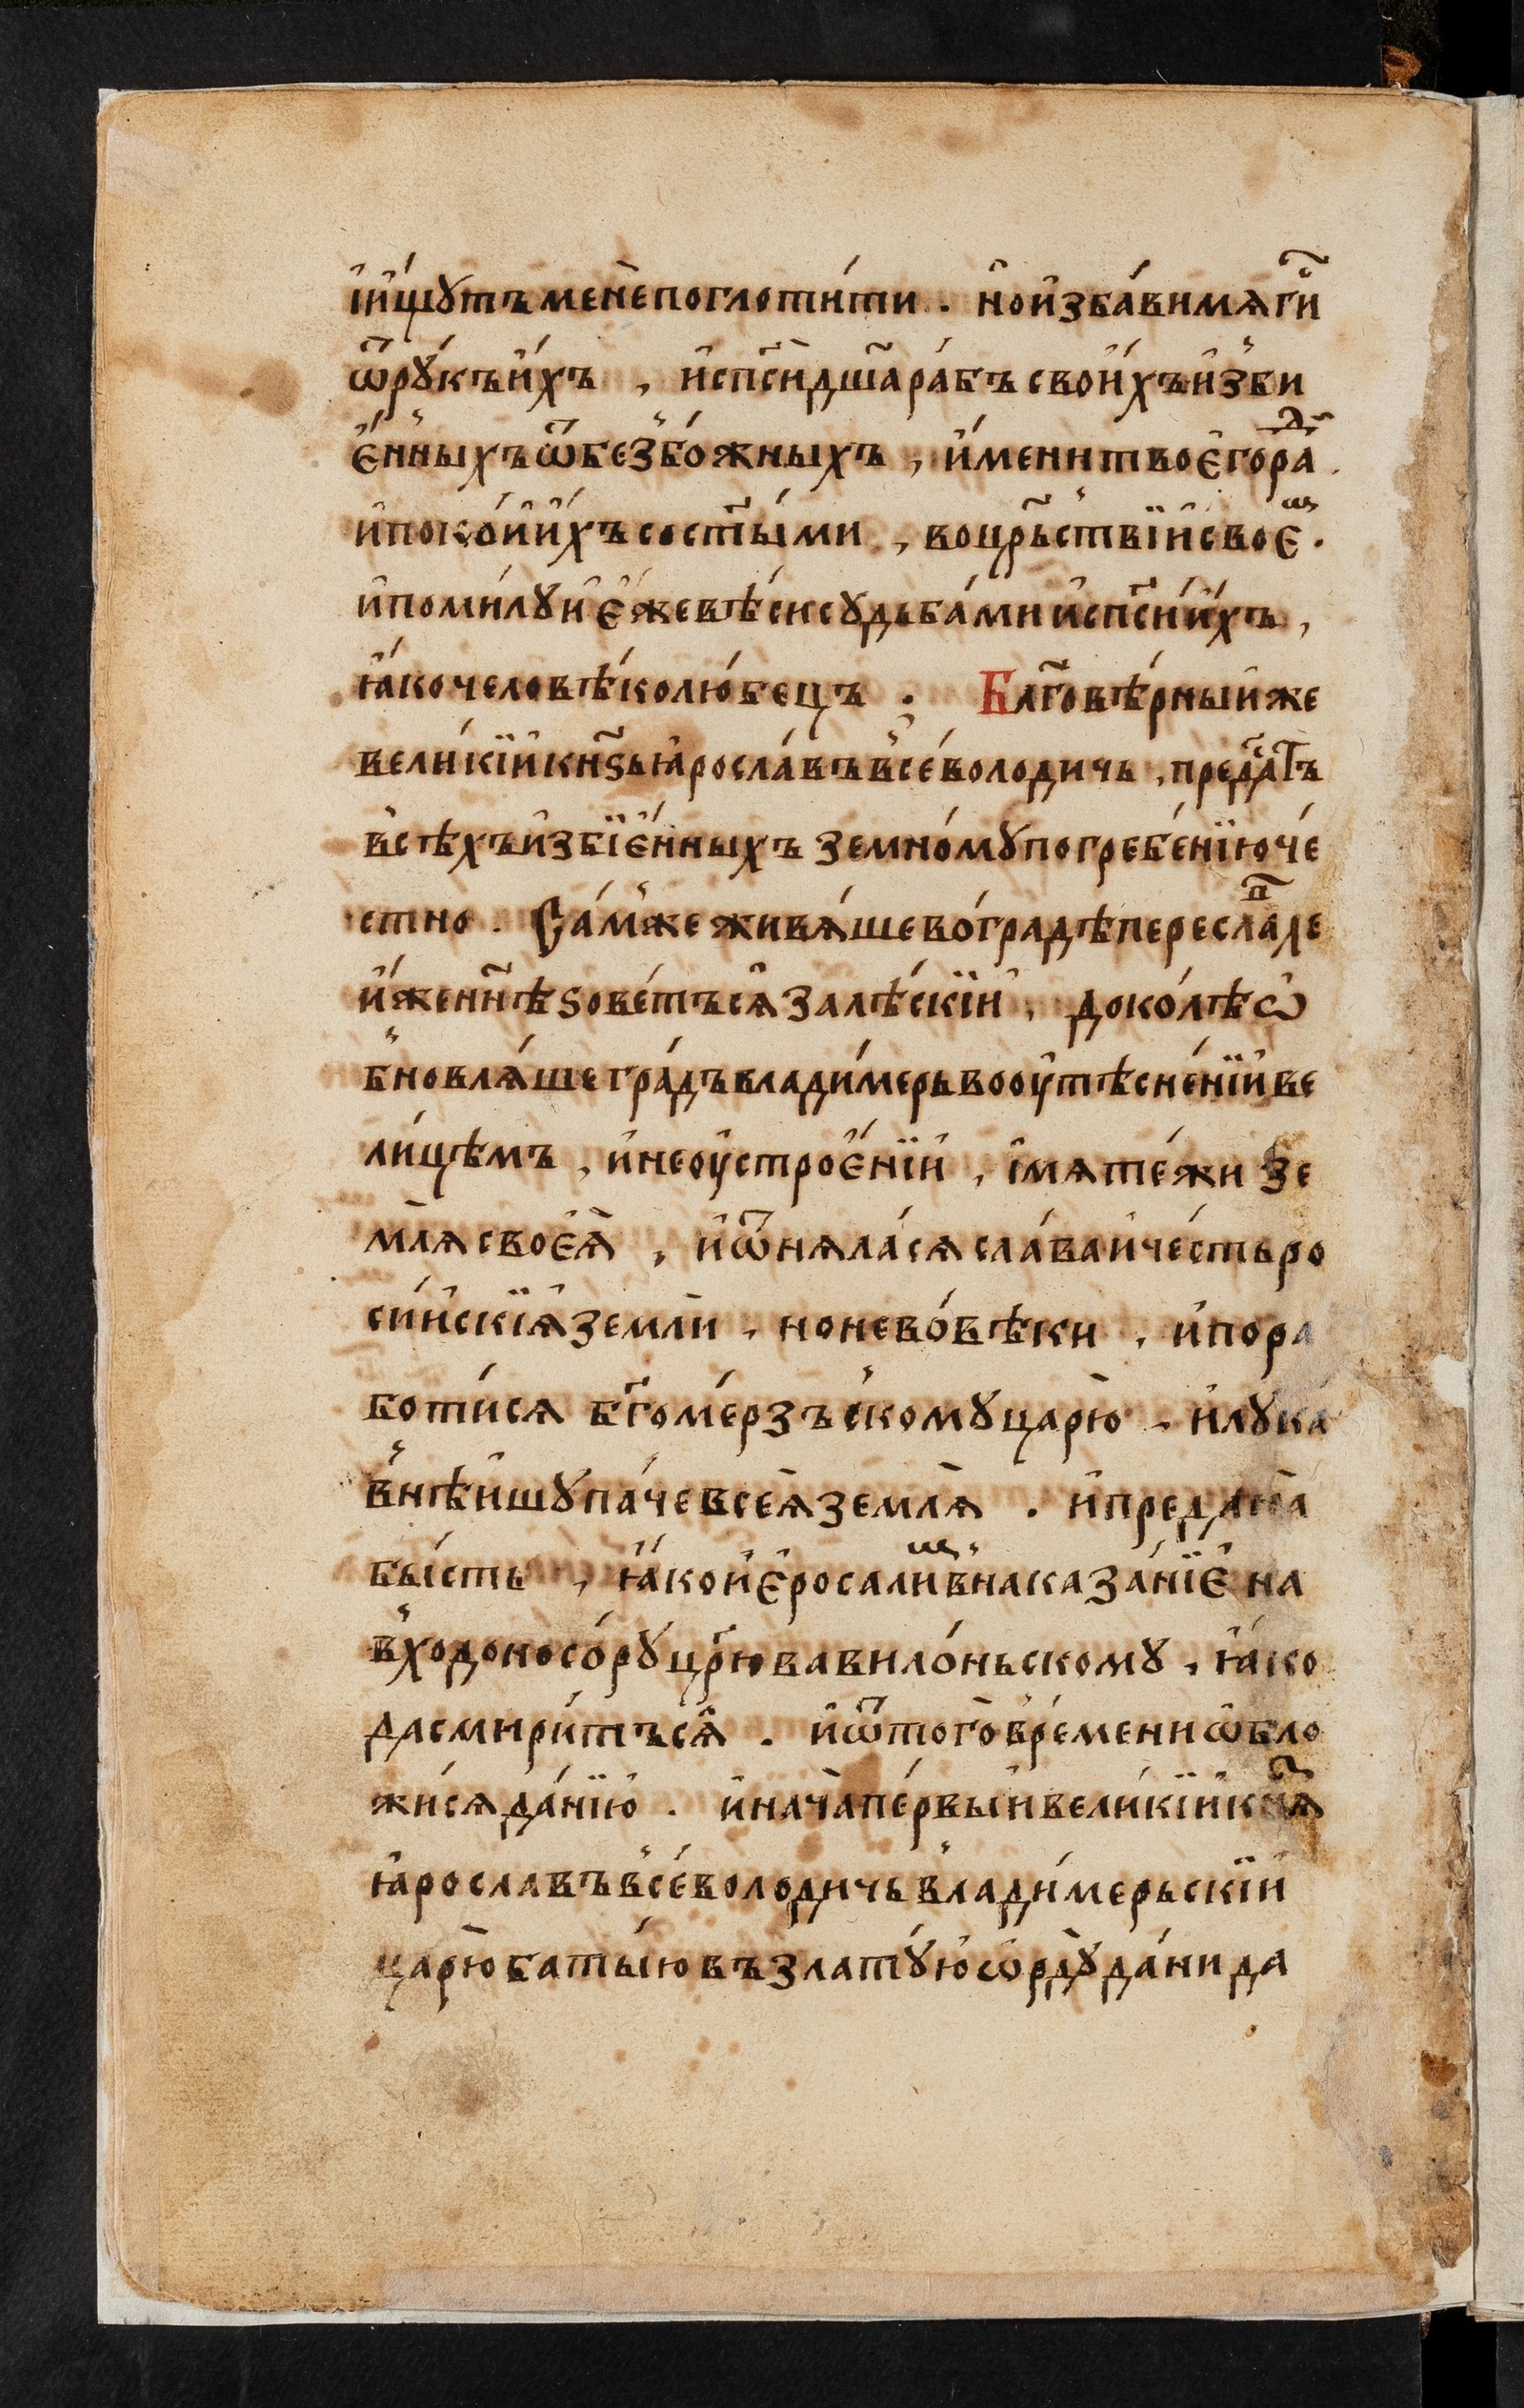 і҆и҆́щꙋтъ менѐ поглоти́ти . но и҆зба́ви мѧ гй҃
ѿ рꙋ́къ и҆́хъ , и҆ сп҃си дш҃а ра́бъ свои́хъ и҆зби
є҆́нныхъ ѿ безбо́жныхъ , и҆́мени твоє҆го ра́д
и҆ поко́й и҆́хъ со ст҃ы́ми , во цр҃ьствїи свое́м .
и҆ поми́лꙋй є҆́же вѣ́си сꙋдьба́ми и҆ сп҃си и҆́хъ ,
ꙗ҆́ко человѣ́колю́бецъ . Бл҃говѣ́рный же
вели́кїй кн҃ѕь ꙗ҆росла́въ всє́володичь , преда́стъ
всѣхъ и҆збїє҆́нныхъ земно́мꙋ погребе́нїю че́
стно . Са́мже живѧ́ше во́ градѣ переслалѣ
и҆́же нн҃ѣ ѕове́тъсѧ залѣ́скїй , доко́лѣ ѡ҆
бновлѧ́ше гра́дъ влади́мерь во оу҆тѣсне́нїи ве
ли́цѣмъ , и҆ неоу҆строє҆́нїи , і҆ мѧте́жи зе
млѧ̀ своєѧ̀ , и҆ ѿнѧла́сѧ сла́ва и҆ че́сть ро
си́йскїѧ землѝ , но не во́ вѣки , и҆ пора
боти́сѧ бг҃оме́рзъскомꙋ царю̀ , и҆ лꙋка́
внѣ́йшꙋ па́че всеѧ̀ землѧ̀ . и҆ предана̀
бы́сть , ꙗ҆́ко и҆ є҆росали́м в наказа́нїє на
входоносо́рꙋ цр҃ю вавило́ньскомꙋ , ꙗ҆́ко
да смири́тъсѧ . и҆ ѿ того̀ вре́мени ѡ҆бло
жи́сѧ да́нїю . и҆ нача̀ пе́рвый вели́кїй кн҃ѧ
ꙗ҆рославъ всє́володичь влади́мерьскїй
царю̀ баты́ю въ златꙋ́ю ѡ҆рдꙋ̀ да́ни да